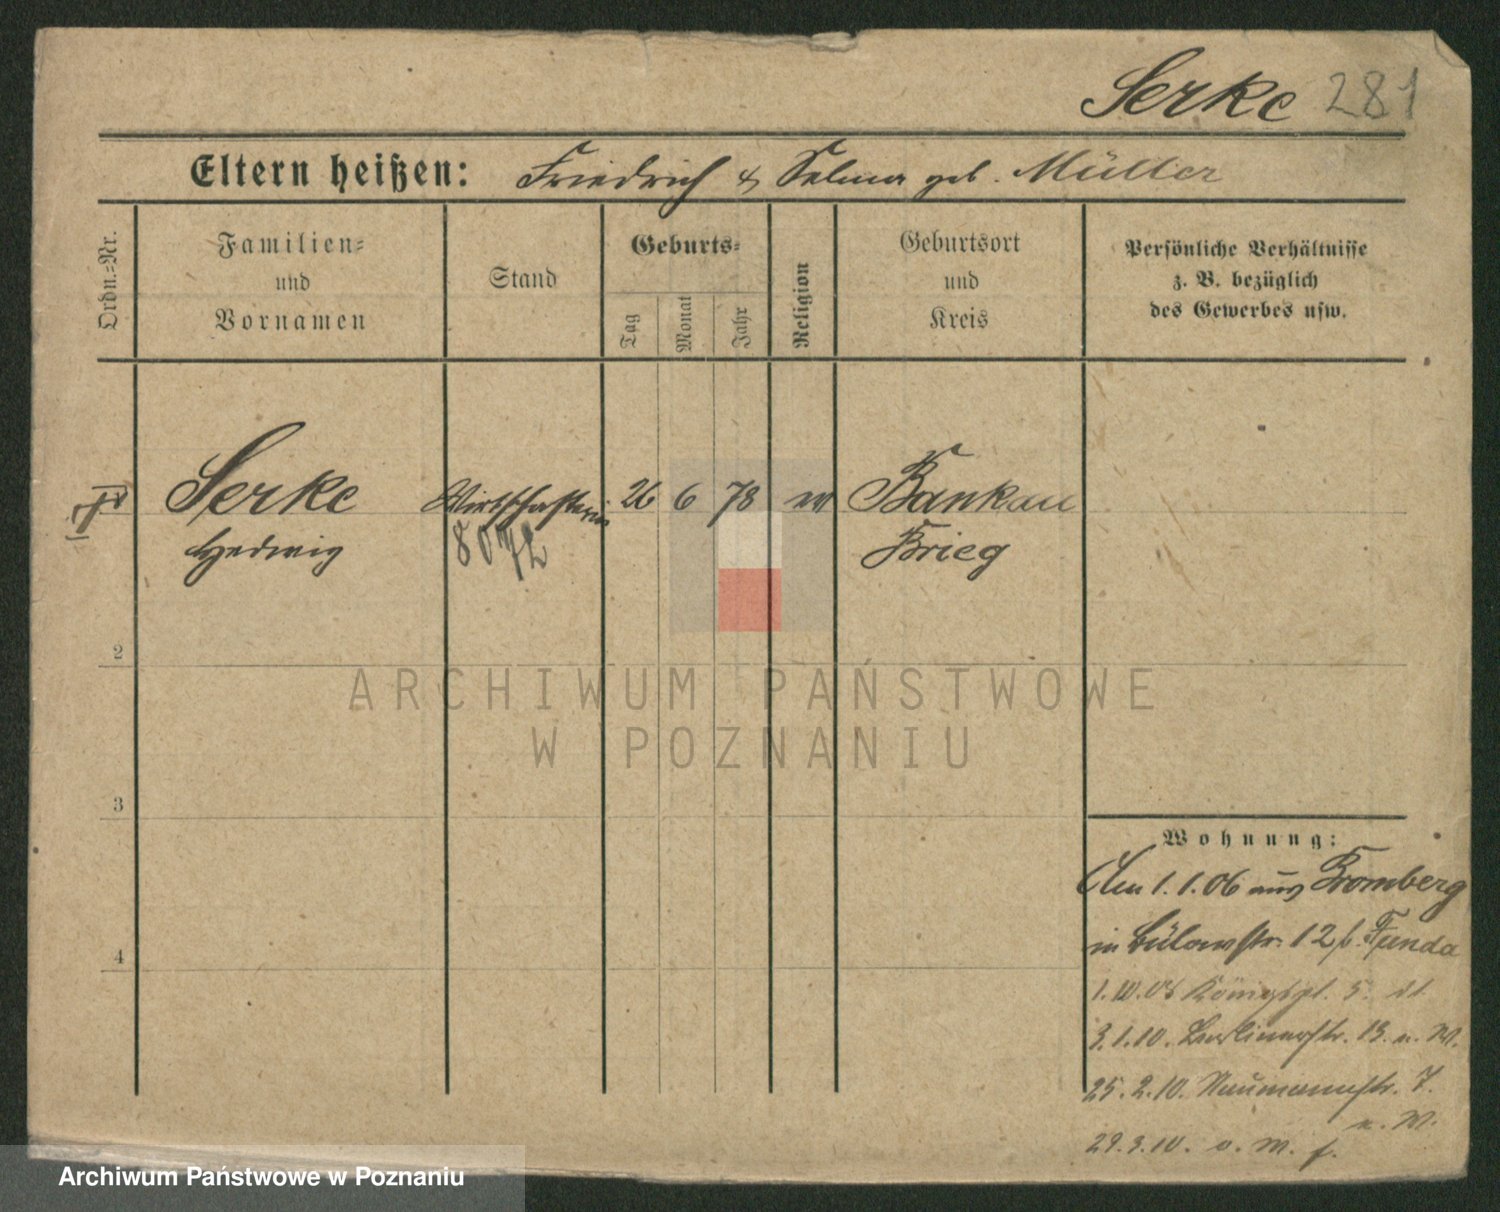 Serke 281
Eltern heißen: Friedrich & Selma geb. Müller
Ordn.-Nr.
Familien-
und
Vornamen
Stand
Geburts-
Tag
Monat
Jahr
Religion
Geburtsort
und
Kreis
Persönliche Verhältnisse
z. B. bezüglich
des Gewerbes usw.
Serke Wirtschafterin 26 6 78 Bankau
Hedwig 8072 Brieg
2
3
4
Wohnung:
Am 1.1.06 aus Bromberg
in Bülowstr. 12 b. Funda
1.10.08 Königspl. 5.
3.1.10. Berlinerstr. 13. n. W.
25.2.10. Naumannstr. 7.
n. W.
29.3.10. o. M. f.
ARCHIWUM PAŃSTWOWE
W POZNANIU
Archiwum Państwowe w Poznaniu